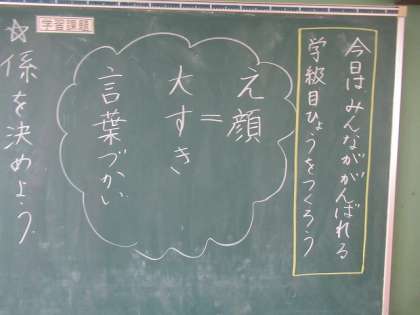 今日は、みんながんばれる
学級目ひょうをつくろう
え顔
＝
大すき
言葉づかい
学習課題
☆係を決めよう。